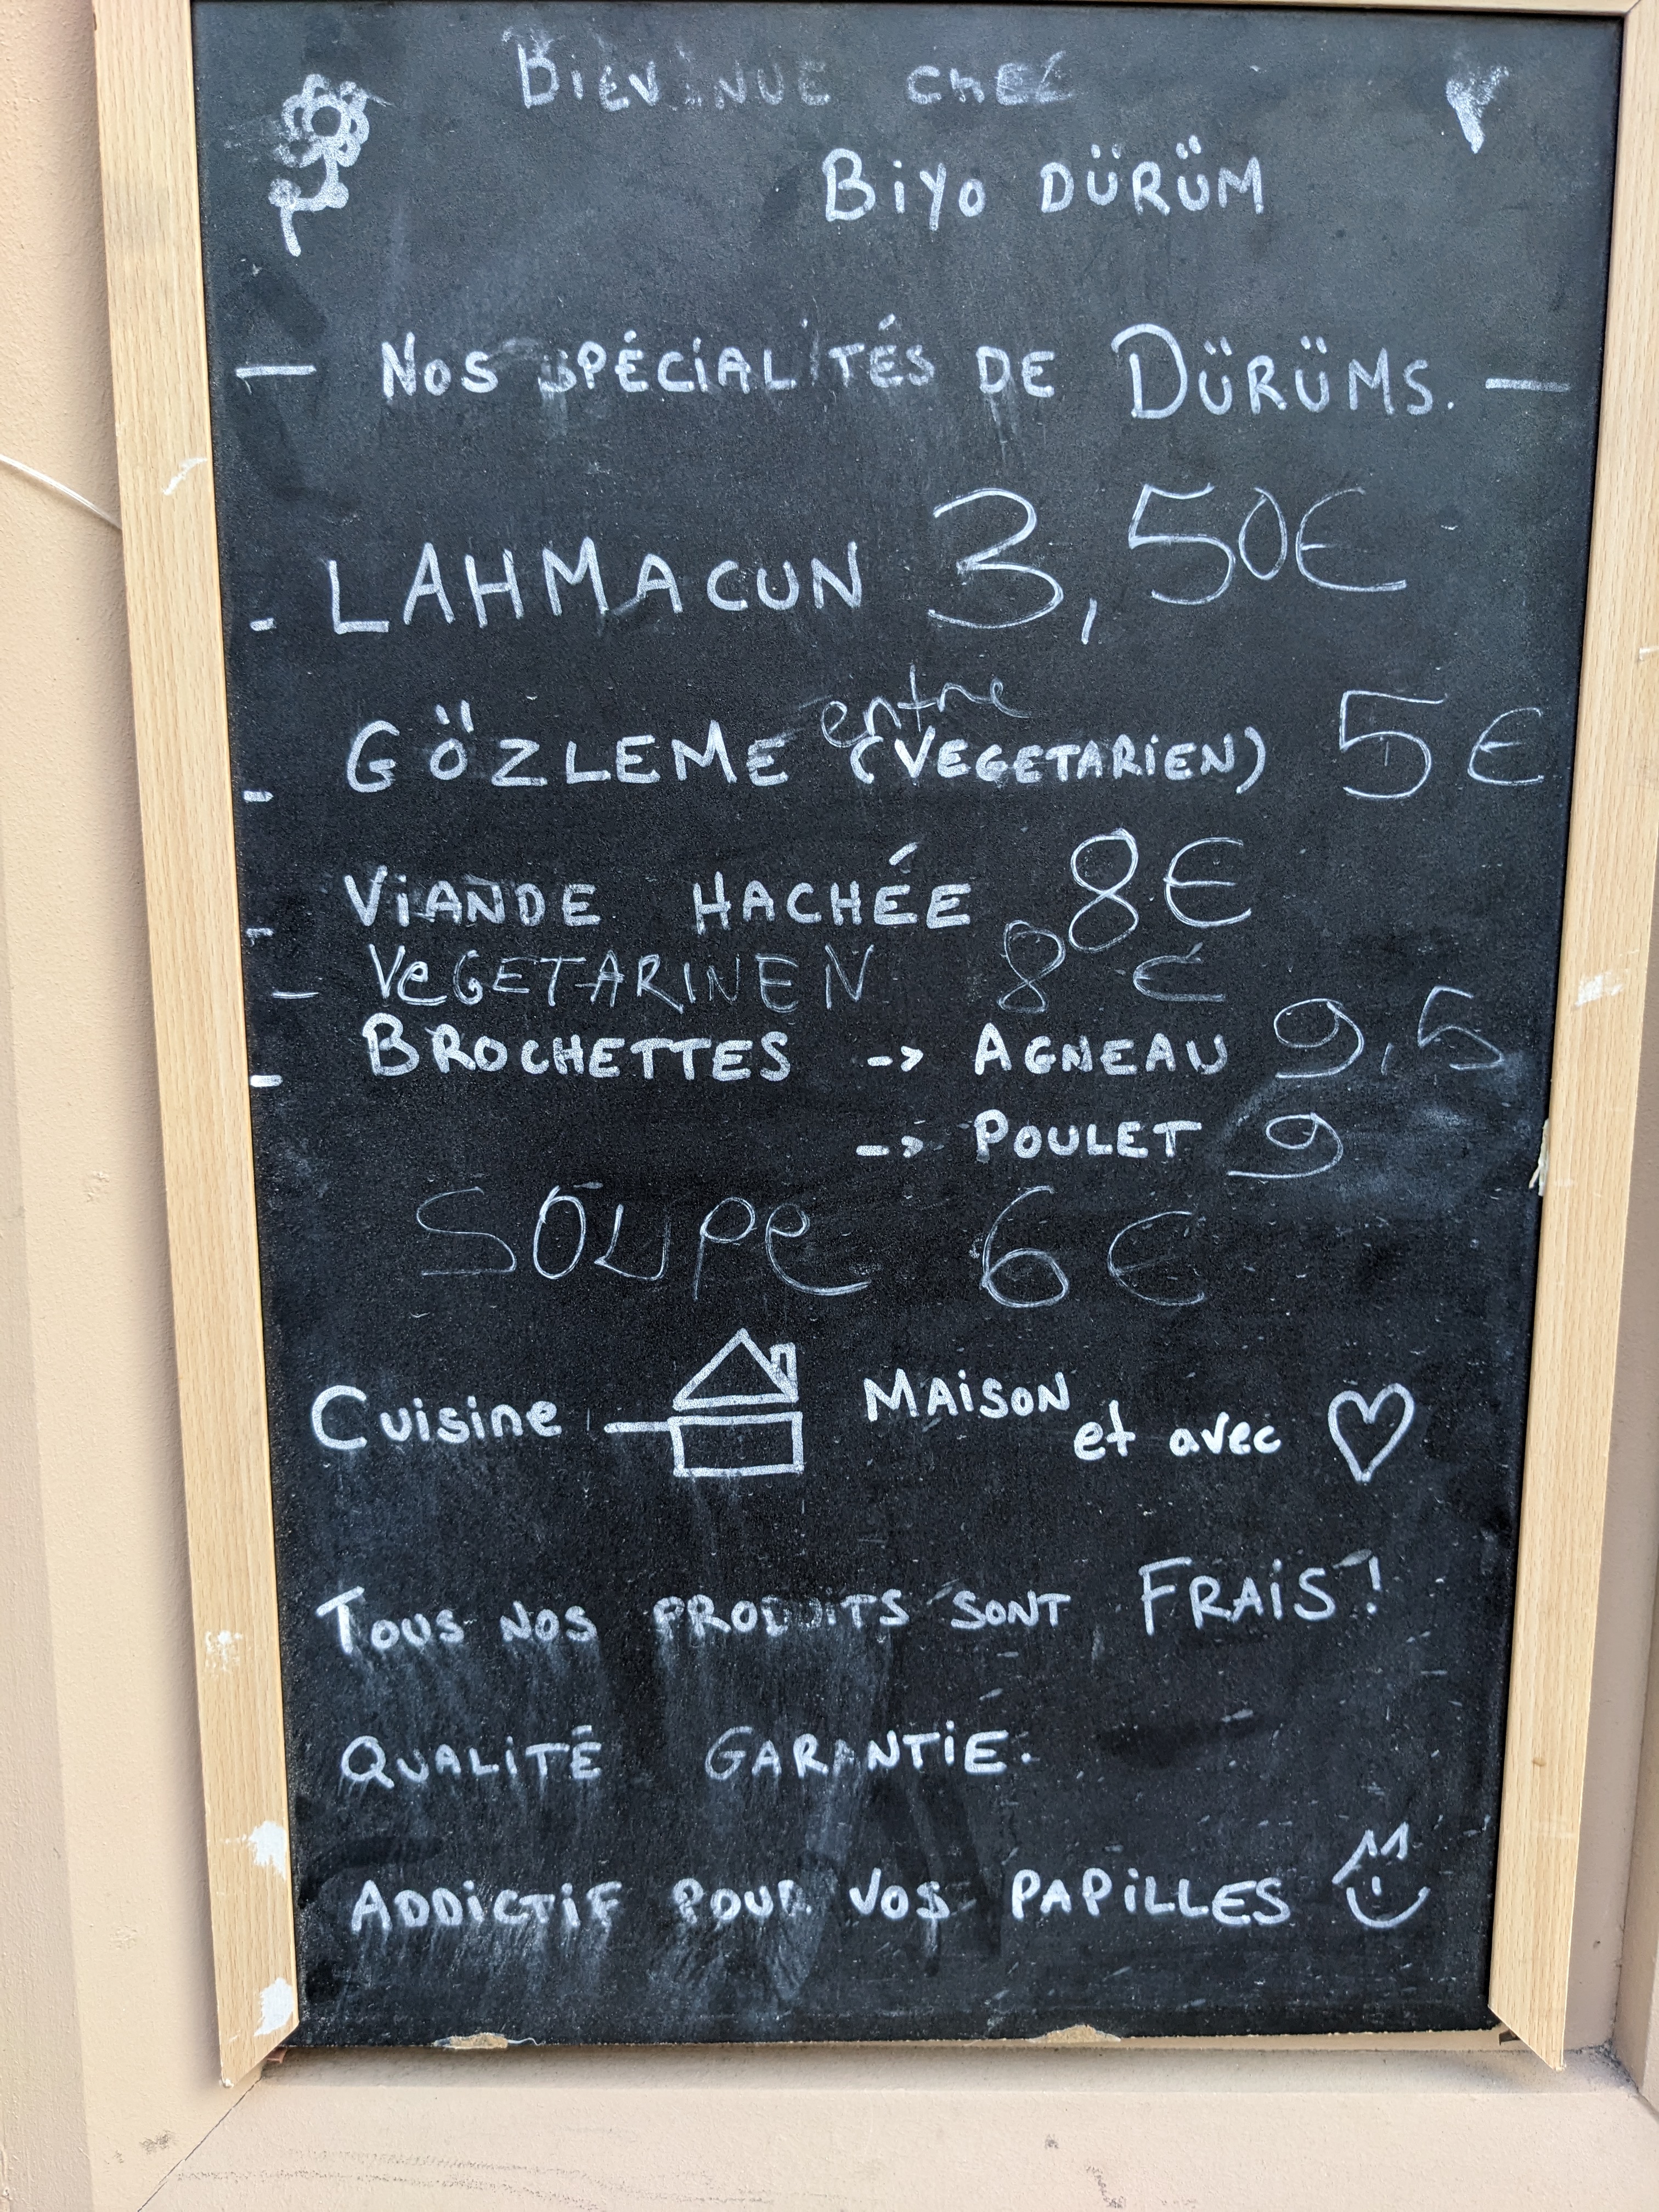 BIENVENUE CHEZ
BiYo DÜRÜM
— NOS SPÉCiALITÉS DE DÜRÜMS. —
- LAHMACUN 3,50€
entre
- GÖZLEME (VEGETARIEN) 5€
- ViANDE HACHÉE 8€
- VeGETARINEN 8€
- BROCHETTES -> AGNEAU 9,5
-> POULET 9
SOUPe 6€
Cuisine MAiSON et avec ♡
TOUS NOS PRODUITS SONT FRAiS !
QUALiTÉ GARANTiE.
ADDiCTiF POUR VOS PAPiLLES